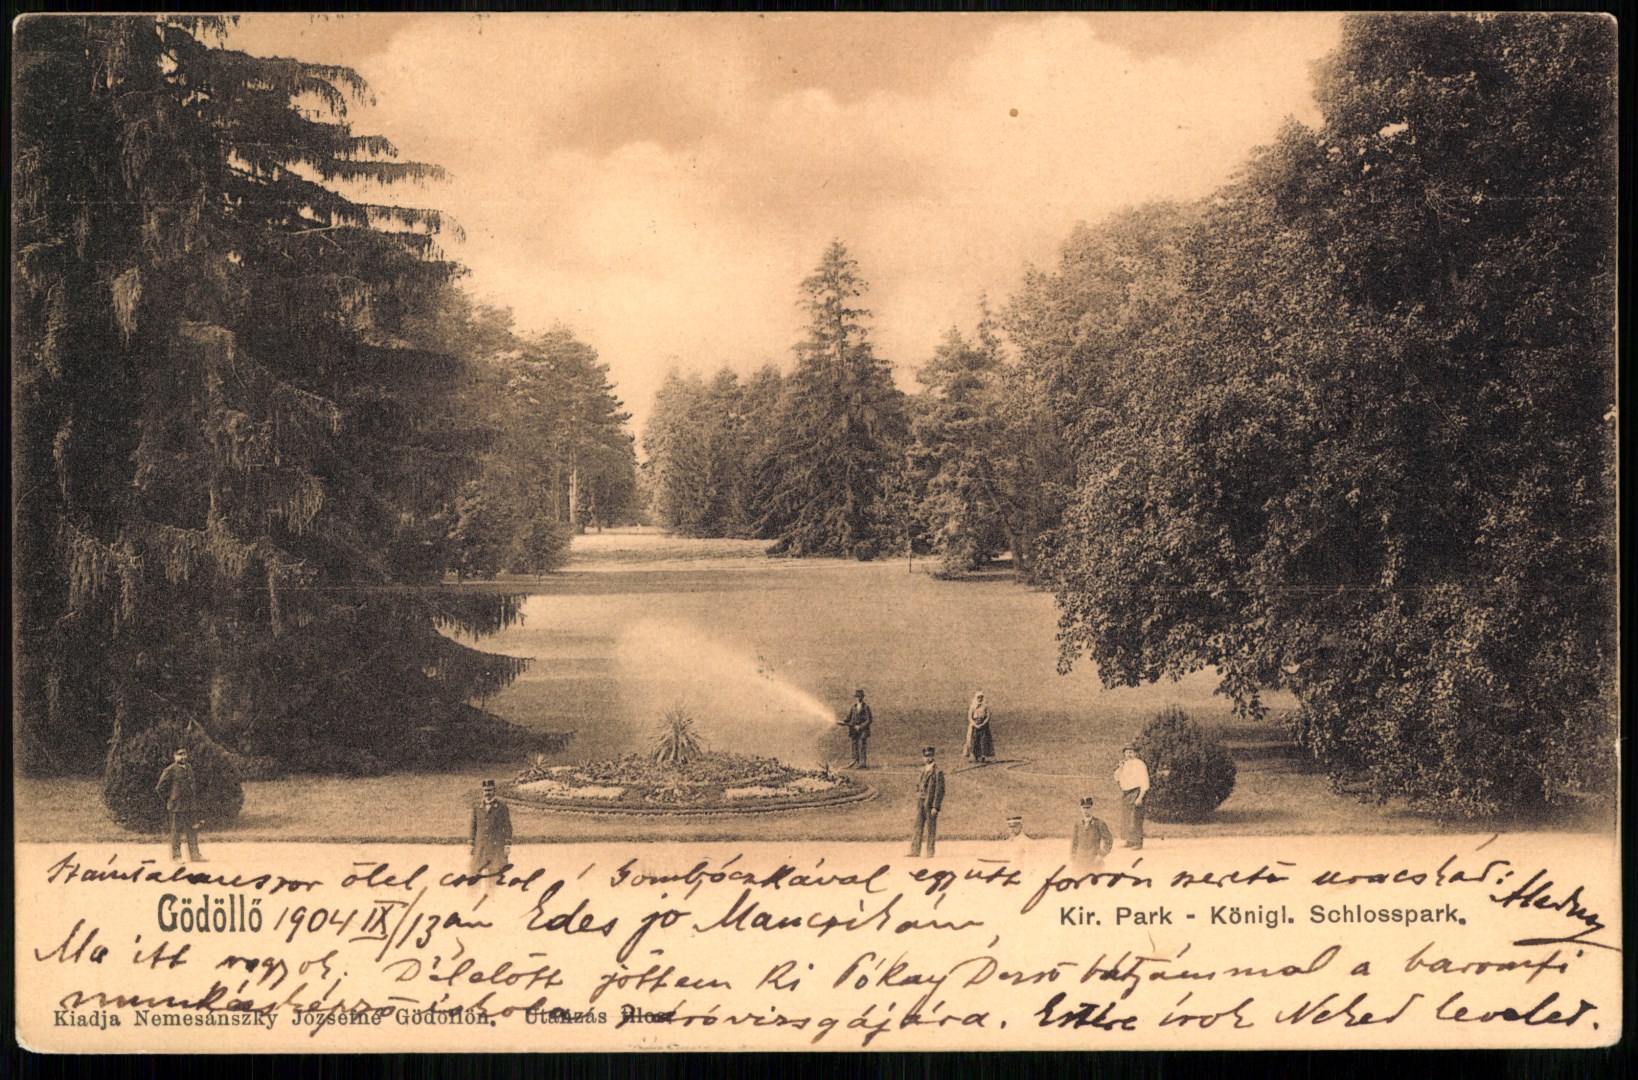 Számtalanszor ölel, csókol Gombóczkával együtt forrón szerető uracskád:
Gödöllő 1904 IX/13án Édes jó Manczikám, Kir. Park - Königl. Schlosspark.
Ma itt vagyok. Délelőtt jöttem ki Pókay Dezső bátyámmal a baromfi
munkásképző iskola záróvizsgájára. Estére írok Neked levelet.
Kiadja Nemesánszky Józsefné Gödöllőn. Utánzás tilos